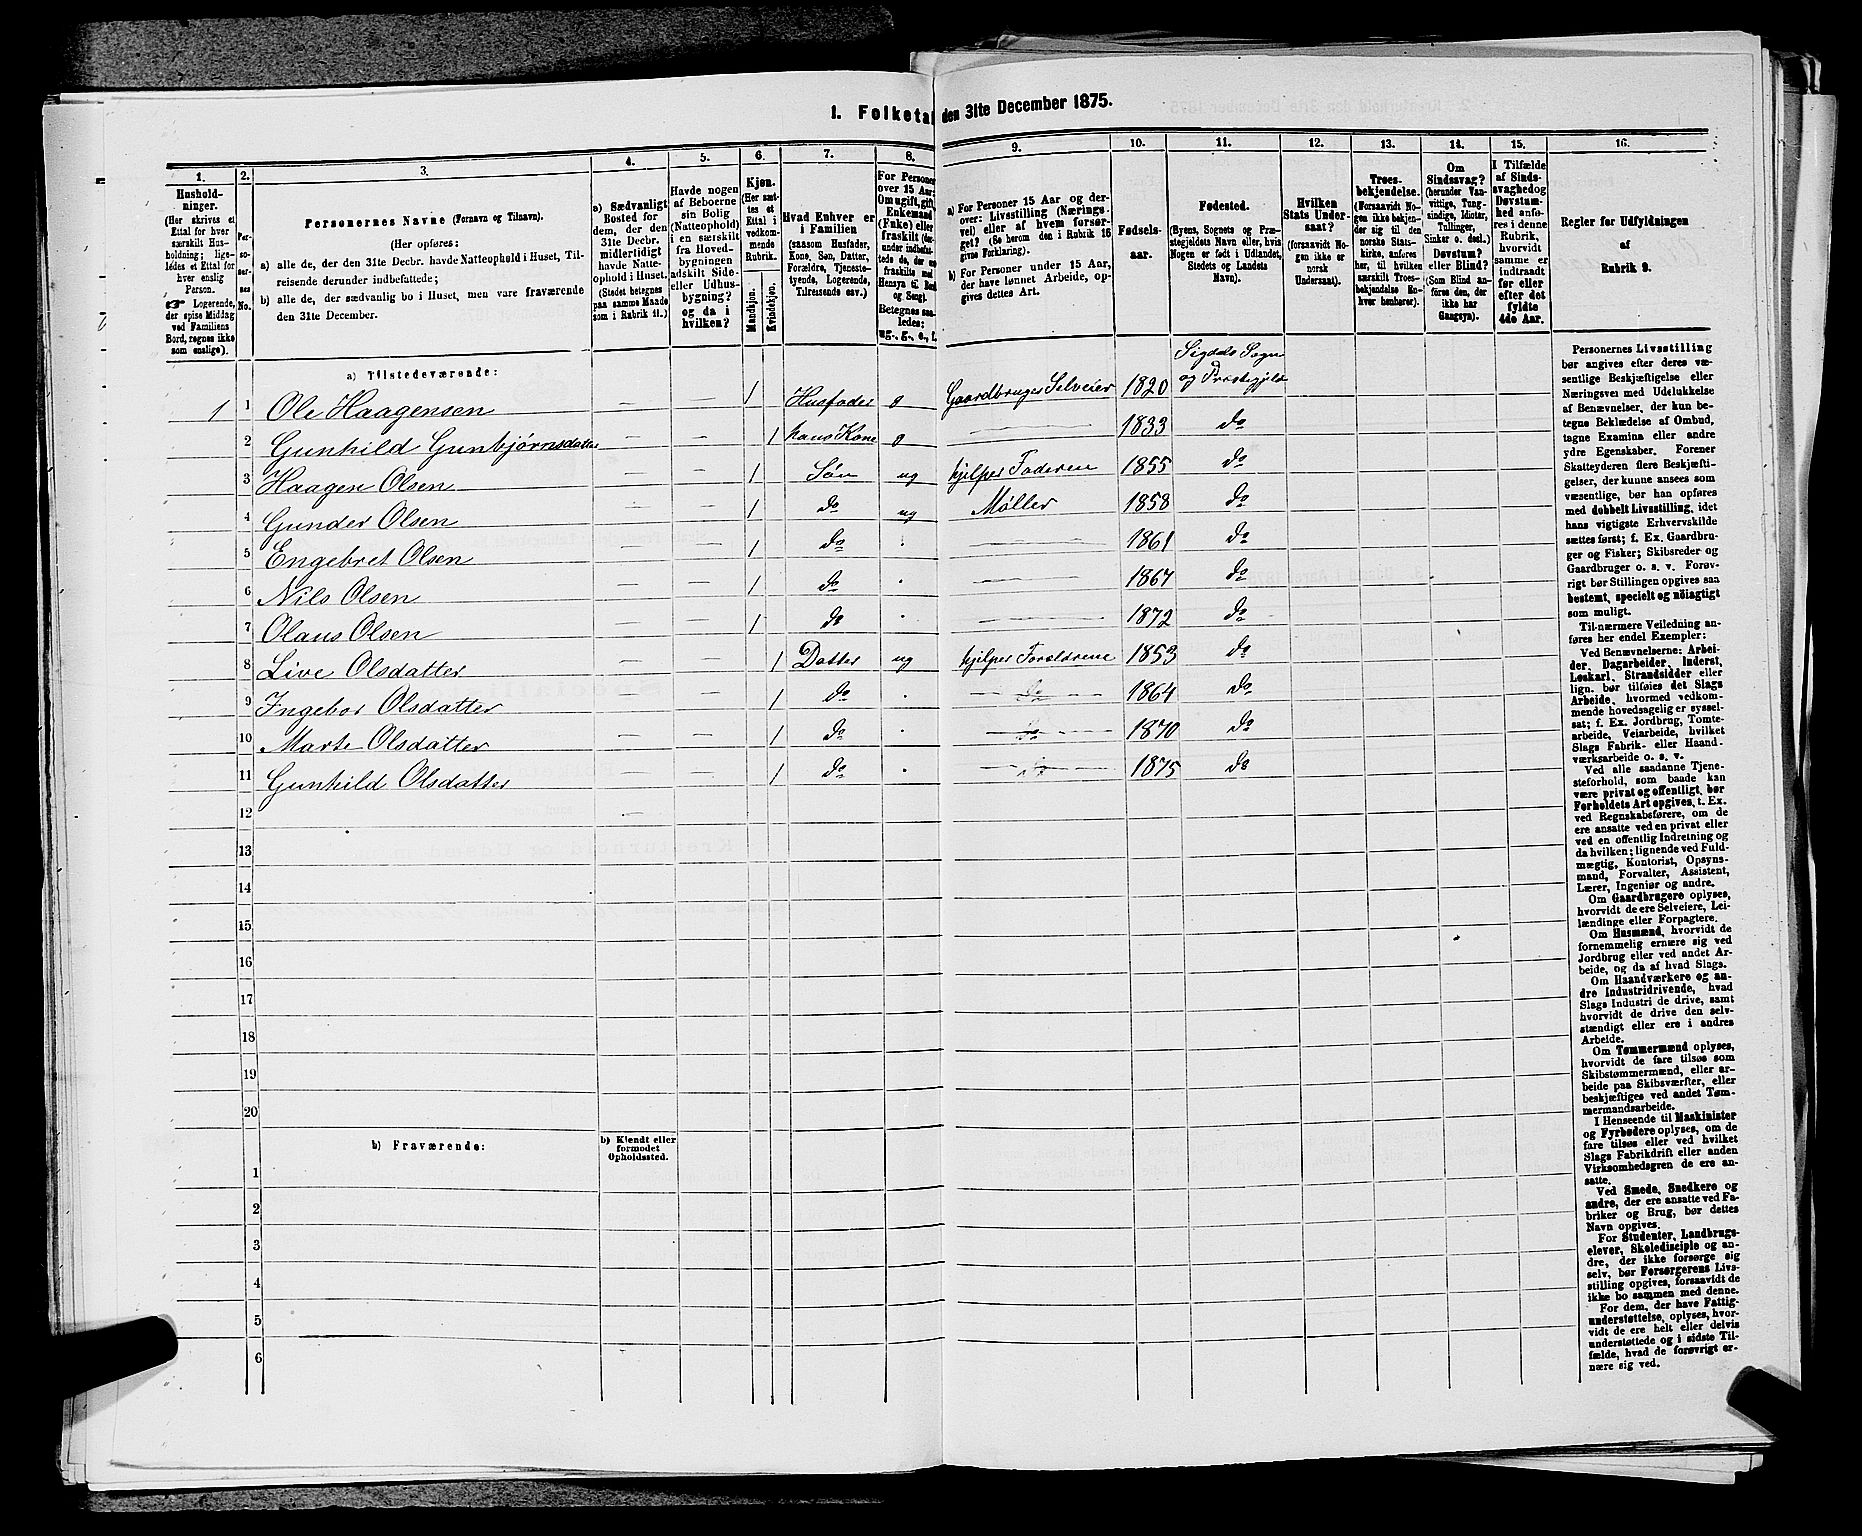 1. Folketal den 31te December 1875.
1. 2. 3. 4. 5. 6. 7. 8. 9. 10. 11. 12. 13. 14. 15. 16.
Hushold-
ninger.
(Her skrives et
Ettal for hver
særskilt Hus-
holdning; lige-
ledes et Ettal for
hver enslig
Person.
☞ Logerende,
der spise Middag
ved Familiens
Bord, regnes ikke
som enslige).
Per-
so-
ner-
nes
No.
Personernes Navne (Fornavn og Tilnavn).
(Her opføres:
a) alle de, der den 31te Decbr. havde Natteophold i Huset, Til-
reisende derunder indbefattede;
b) alle de, der sædvanlig bo i Huset, men vare fraværende
den 31te December.
a) Sædvanligt
Bosted for
dem, der den
31te Decbr.
midlertidigt
havde Natte-
ophold i Huset.
(Stedet betegnes
paa samme Maade
som i Rubrik 11.)
Havde nogen
af Beboerne
sin Bolig
(Natteophold)
i en særskilt
fra Hoved-
bygningen
adskilt Side-
eller Udhus-
bygning?
og da i
hvilken?
Kjøn.
(Her sæt-
tes et
Ettal i
vedkom-
mende
Rubrik.
Mandkjøn.
Kvindekjøn.
Hvad Enhver er
i Familien
(saasom Husfader,
Kone, Søn, Datter,
Forældre, Tjeneste-
tyende, Logerende,
Tilreisende osv.)
For Personer
over 15 Aar:
Om ugift, gift,
Enkemand
(Enke) eller
fraskilt
Betegnes saa-
ledes:
ug., g., e., f.
a) For Personer 15 Aar og der-
over: Livsstilling (Nærings-
vei) eller af hvem forsør-
get? (Se herom den i Rubrik 16
givne Forklaring).
b) For Personer under 15 Aar,
der have lønnet Arbeide, op-
gives dettes Art.
Fødsels-
aar.
Fødested.
(Byens, Sognets og Præ-
stegjeldets Navn eller, hvis
Nogen er født i Udlandet,
Stedets og Landets
Navn).
Hvilken
Stats Under-
saat?
(forsaavidt No-
gen ikke er
norsk
Undersaat).
Troes-
bekjendelse.
(Forsaavidt No-
gen ikke bekjen-
der sig til den
norske Stats-
kirke, anføres
her, til hvilken
særskilt Troes-
bekjendelse En-
hver henhører).
Om
Sindssvag?
(herunder Van-
vittige, Tung-
sindige, Idioter,
Tullinger,
Sinker o. desl.)
Døvstum?
eller Blind?
(Som Blind an-
føres den, der
ikke har
Gangsyn).
I Tilfælde
af Sinds-
svaghed og
Døvstum-
hed anfø-
res i denne
Rubrik,
hvorvidt
samme er
indtraadt
før eller
efter det
fyldte
4de Aar.
Regler for Udfyldningen
af
Rubrik 9.
a) Tilstedeværende:
Sigdals Sogn
og Præstegjeld
1 1 Ole Haagensen — — 1 Husfader g Gaardbruger Selveier 1820
2 Gunhild Gunbjørnsdatter — — 1 hans Kone g — 1833 do
3 Haagen Olsen — — 1 Søn ug hjelper Faderen 1855 do
4 Gunder Olsen — — 1 do ug Møller 1858 do
5 Engebret Olsen — — 1 do — 1861 do
6 Nils Olsen — — 1 do — 1867 do
7 Olaus Olsen — — 1 do — 1872 do
8 Live Olsdatter — — 1 Datter ug hjelper Forældrene 1853 do
9 Ingebor Olsdatter — — 1 do do 1864 do
10 Marte Olsdatter — — 1 do do 1870 do
11 Gunhild Olsdatter — — 1 do do 1875 do
12 —
13
14
15
16
17
18
19
20
b) Fraværende:
b) Kjendt eller
formodet
Opholdssted.
1
2
3
4
5
6
Personernes Livsstilling
bør angives efter deres væ-
sentlige Beskjæftigelse eller
Næringsvei med Udelukkelse
af Benævnelser, der kun be-
tegne Beklædelse af Ombud,
tagne Examina eller andre
ydre Egenskaber. Forener
Skatteyderen flere Beskjæfti-
gelser, der kunne ansees som
væsentlige, bør han opføres
med dobbelt Livsstilling, idet
hans vigtigste Erhvervskilde
sættes først; f. Ex. Gaardbru-
ger og Fisker; Skibsreder og
Gaardbruger o. s. v. Forøv-
rigt bør Stillingen opgives saa
bestemt, specielt og nöiagtigt
som muligt.
Til nærmere Veiledning an-
føres her endel Exempler:
Ved Benævnelserne: Arbei-
der, Dagarbeider, Inderst,
Løskarl, Strandsidder eller
lign. bør tilføies det Slags
Arbeide, hvormed vedkom-
mende hovedsagelig er syssel-
sat; f. Ex. Jordbrug, Tomte-
arbeide, Veiarbeide, hvilket
Slags Fabrik- eller Haand-
værksarbeide o. s. v.
Ved alle saadanne Tjene-
steforhold, som baade kan
være privat og offentligt, bør
Forholdets Art opgives, t. Ex.
ved Regnskabsførere, om de
ere ansatte ved en privat eller
ved en offentlig Indretning og
da hvilken; lignende ved Fuld-
mægtig, Kontorist, Opsyns-
mand, Forvalter, Assistent,
Lærer, Ingeniør og andre.
Om Gaardbrugere oplyses,
hvorvidt de ere Selveiere, Lei-
lændinge eller Forpagtere.
Om Husmænd, hvorvidt de
fornemmelig ernære sig ved
Jordbrug eller ved andet Ar-
beide, og da af hvad Slags.
Om Haandværkere og an-
dre Industridrivende, hvad
Slags Industri de drive, samt
hvorvidt de drive den selv-
stændigt eller ere i andres
Arbeide.
Om Tømmermænd oplyses,
hvorvidt de fare tilsøs som
Skibstømmermænd, eller ar-
beide paa Skibsværfter, eller
beskjæftiges ved andet Tøm-
mermandsarbeide.
I Henseende til Maskinister
og Fyrbødere oplyses, om de
fare tilsøs eller ved hvilket
Slags Fabrikdrift eller anden
Virksomhedsgren de ere an-
satte.
Ved Smede, Snedkere og
andre, der ere ansatte ved Fa-
briker og Brug, bør dettes
Navn opgives.
For Studenter, Landbrugs-
elever, Skoledisciple og an-
dre, der ikke forsørge sig
selv, bør Forsørgerens Livs-
stilling opgives, forsaavidt de
ikke bo sammen med denne.
For dem, der have Fattig-
understøttelse, oplyses, hvor-
vidt de ere helt eller delvis
understøttede og i sidste Til-
fælde, hvad de forøvrigt er-
nære sig ved.